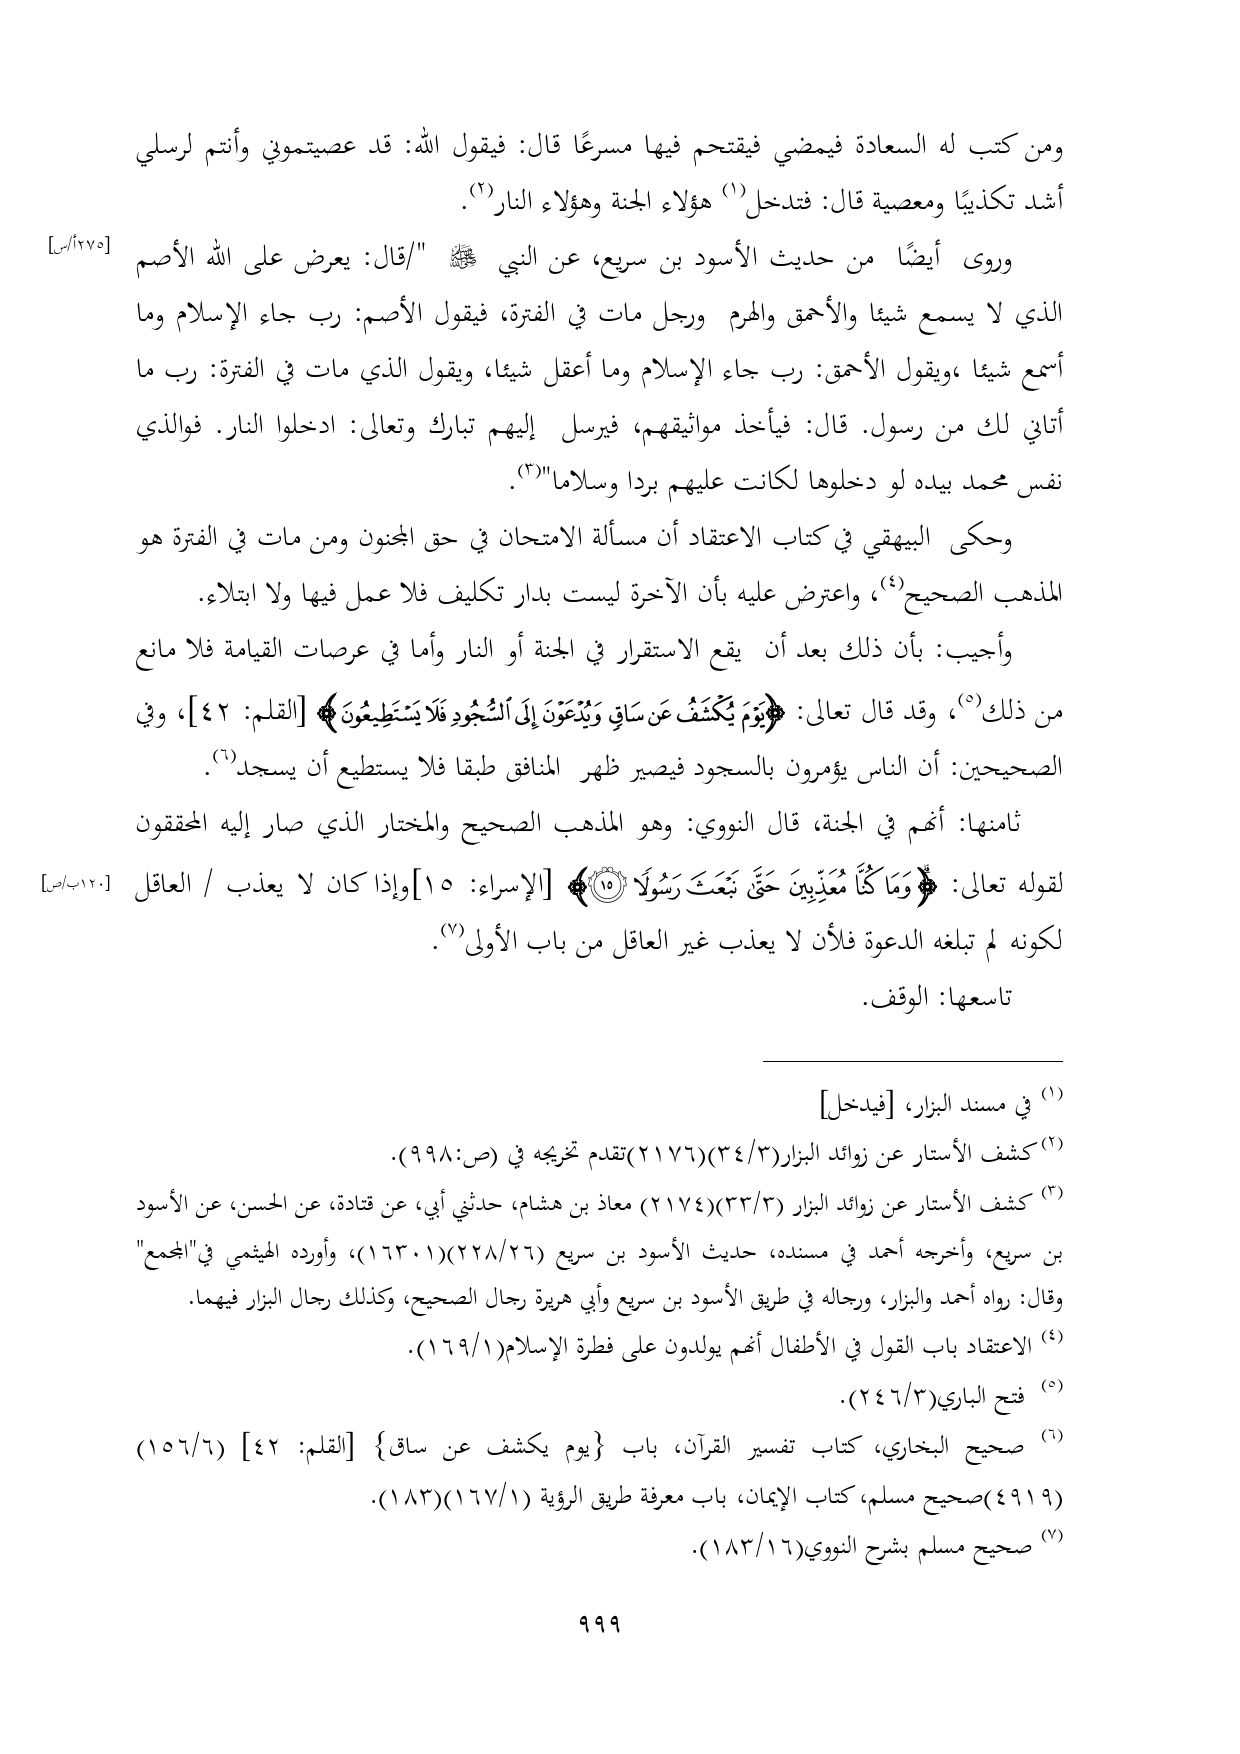 ومن كتب له السعادة فيمضي فيقتحم فيها مسرعًا قال: فيقول الله: قد عصيتموني وأنتم لرسلي
أشد تكذيبًا ومعصية قال: فتدخل(١) هؤلاء الجنة وهؤلاء النار(٢).
وروى أيضًا من حديث الأسود بن سريع، عن النبي ﷺ "/قال: يعرض على الله الأصم
[٢٧٥أ/س]
الذي لا يسمع شيئا والأحمق والهرم ورجل مات في الفترة، فيقول الأصم: رب جاء الإسلام وما
أسمع شيئا ،ويقول الأحمق: رب جاء الإسلام وما أعقل شيئا، ويقول الذي مات في الفترة: رب ما
أتاني لك من رسول. قال: فيأخذ مواثيقهم، فيرسل إليهم تبارك وتعالى: ادخلوا النار. فوالذي
نفس محمد بيده لو دخلوها لكانت عليهم بردا وسلاما"(٣).
وحكى البيهقي في كتاب الاعتقاد أن مسألة الامتحان في حق المجنون ومن مات في الفترة هو
المذهب الصحيح(٤)، واعترض عليه بأن الآخرة ليست بدار تكليف فلا عمل فيها ولا ابتلاء.
وأجيب: بأن ذلك بعد أن يقع الاستقرار في الجنة أو النار وأما في عرصات القيامة فلا مانع
من ذلك(٥)، وقد قال تعالى: ﴿يَوْمَ يُكْشَفُ عَن سَاقٍ وَيُدْعَوْنَ إِلَى ٱلسُّجُودِ فَلَا يَسْتَطِيعُونَ﴾ [القلم: ٤٢]، وفي
الصحيحين: أن الناس يؤمرون بالسجود فيصير ظهر المنافق طبقا فلا يستطيع أن يسجد(٦).
ثامنها: أنهم في الجنة، قال النووي: وهو المذهب الصحيح والمختار الذي صار إليه المحققون
لقوله تعالى: ﴿وَمَا كُنَّا مُعَذِّبِينَ حَتَّىٰ نَبْعَثَ رَسُولًا ١٥﴾ [الإسراء: ١٥]وإذا كان لا يعذب / العاقل
[١٢٠ب/ص]
لكونه لم تبلغه الدعوة فلأن لا يعذب غير العاقل من باب الأولى(٧).
تاسعها: الوقف.
(١) في مسند البزار، [فيدخل]
(٢) كشف الأستار عن زوائد البزار(٣٤/٣)(٢١٧٦)تقدم تخريجه في (ص:٩٩٨).
(٣) كشف الأستار عن زوائد البزار (٣٣/٣)(٢١٧٤) معاذ بن هشام، حدثني أبي، عن قتادة، عن الحسن، عن الأسود
بن سريع، وأخرجه أحمد في مسنده، حديث الأسود بن سريع (٢٢٨/٢٦)(١٦٣٠١)، وأورده الهيثمي في"المجمع"
وقال: رواه أحمد والبزار، ورجاله في طريق الأسود بن سريع وأبي هريرة رجال الصحيح، وكذلك رجال البزار فيهما.
(٤) الاعتقاد باب القول في الأطفال أنهم يولدون على فطرة الإسلام(١٦٩/١).
(٥) فتح الباري(٢٤٦/٣).
(٦) صحيح البخاري، كتاب تفسير القرآن، باب {يوم يكشف عن ساق} [القلم: ٤٢] (١٥٦/٦)
(٤٩١٩)صحيح مسلم، كتاب الإيمان، باب معرفة طريق الرؤية (١٦٧/١)(١٨٣).
(٧) صحيح مسلم بشرح النووي(١٨٣/١٦).
٩٩٩